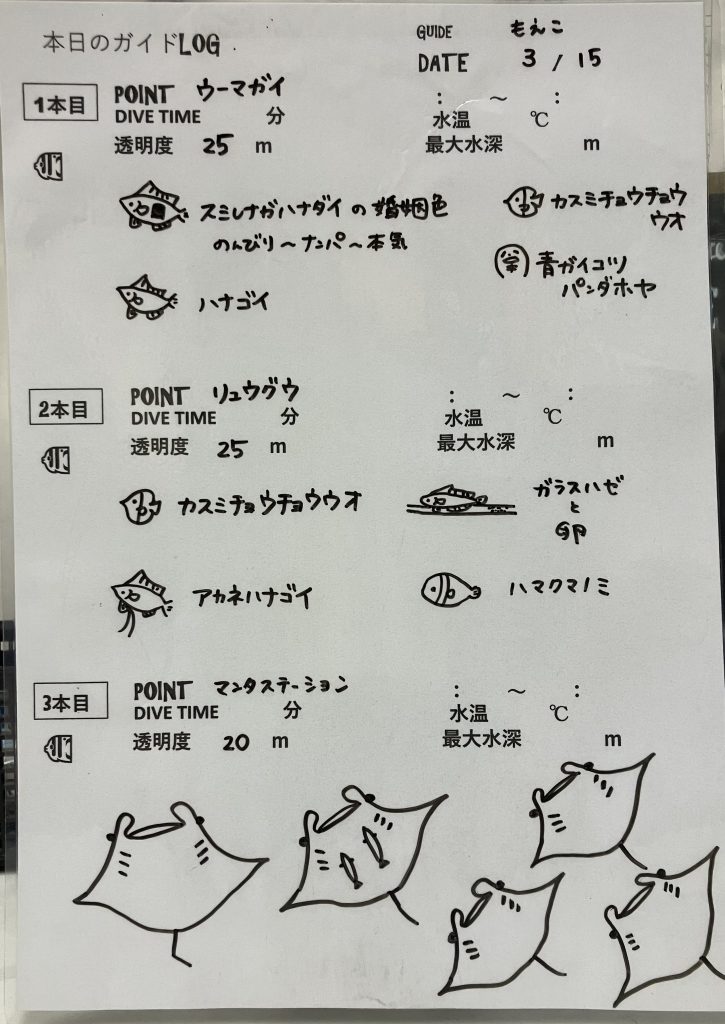 本日のガイドLOG
GUIDE もえこ
DATE 3 / 15
1本目 POINT ウーマガイ : ～ :
DIVE TIME 分 水温 ℃
透明度 25 m 最大水深 m
スミレナガハナダイの婚姻色
のんびり～ナンパ～本気
カスミチョウチョウ
ウオ
ハナゴイ
青ガイコツ
パンダホヤ
2本目 POINT リュウグウ : ～ :
DIVE TIME 分 水温 ℃
透明度 25 m 最大水深 m
カスミチョウチョウウオ
ガラスハゼ
と
卵
アカネハナゴイ
ハマクマノミ
3本目 POINT マンタステーション : ～ :
DIVE TIME 分 水温 ℃
透明度 20 m 最大水深 m